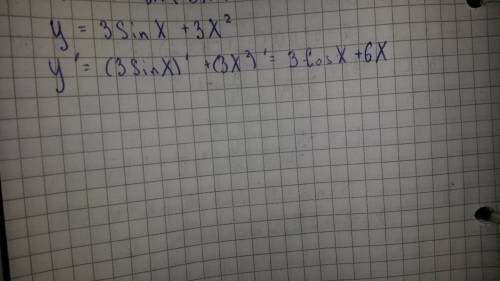 y = 3 Sin X + 3X²
y' = (3 SinX)' + (3X²)' = 3·CosX + 6X